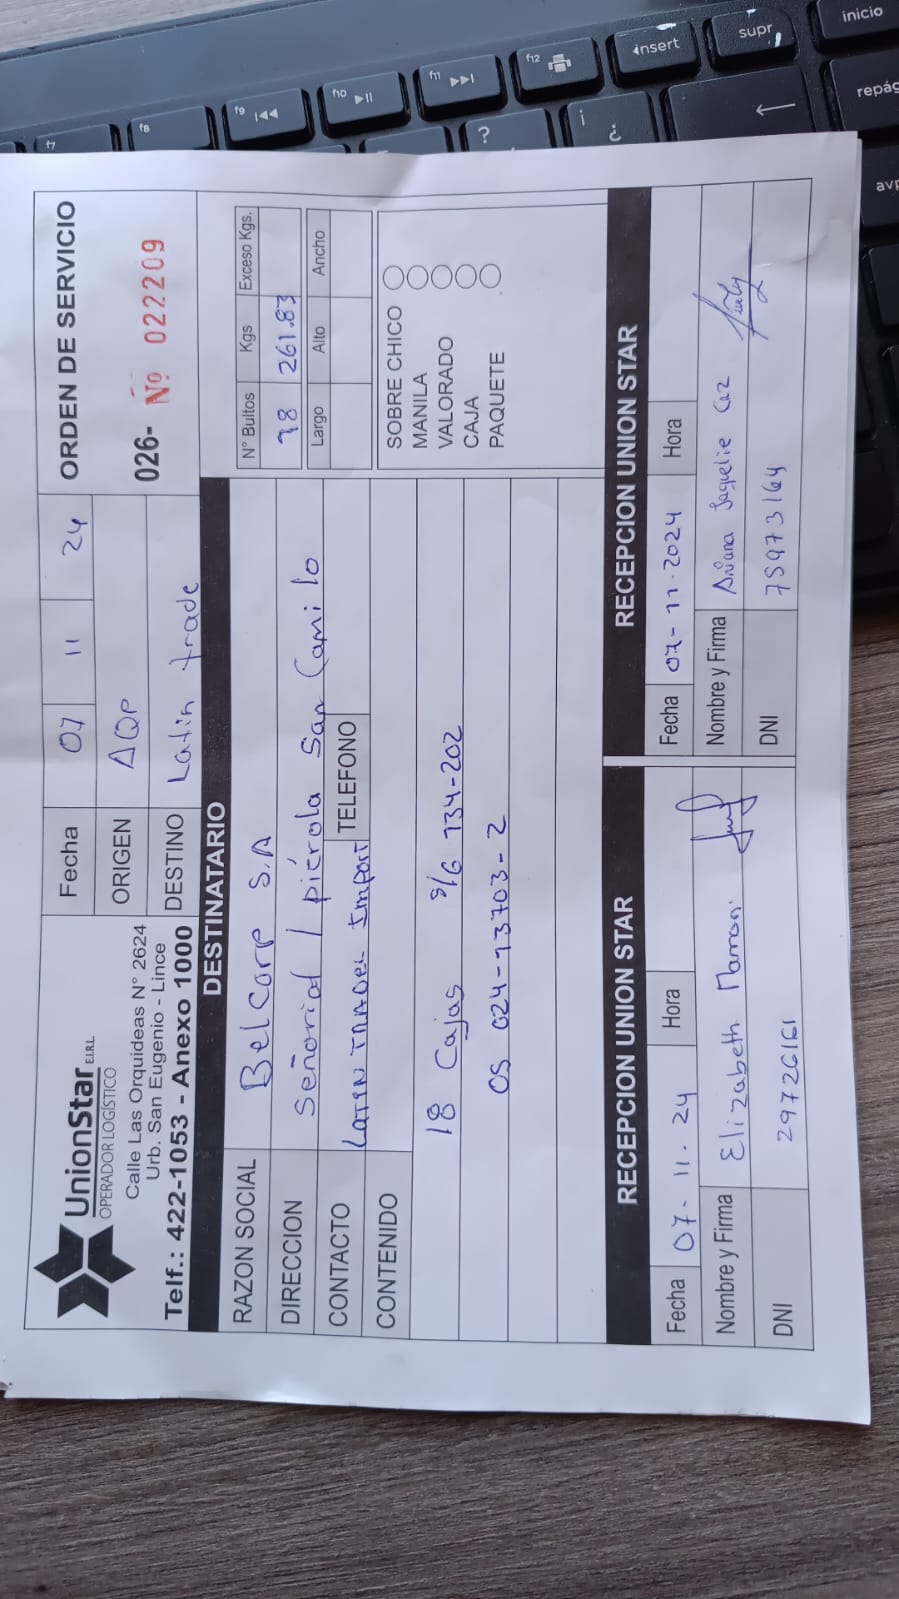 UnionStar E.I.R.L.
OPERADOR LOGÍSTICO
Calle Las Orquideas N° 2624
Urb. San Eugenio - Lince
Telf.: 422-1053 - Anexo 1000
Fecha 07 11 24
ORIGEN AQP
DESTINO Latin trade
ORDEN DE SERVICIO
026- Nº 022209
DESTINATARIO
RAZON SOCIAL BelCorp S.A
DIRECCION Señorial / piérola San Camilo
CONTACTO Latin Trader Import TELEFONO
CONTENIDO
18 Cajas s/G 134-202
OS 024-13703-2
N° Bultos Kgs Exceso Kgs.
18 261.83
Largo Alto Ancho
SOBRE CHICO
MANILA
VALORADO
CAJA
PAQUETE
RECEPCION UNION STAR
Fecha 07-11.24 Hora
Nombre y Firma Elizabeth Mamani
DNI 29726161
RECEPCION UNION STAR
Fecha 07-11-2024 Hora
Nombre y Firma
DNI 75973164
f7
f8
f9
f10
f11
f12
insert
supr
inicio
?
¡
¿
repág
avp